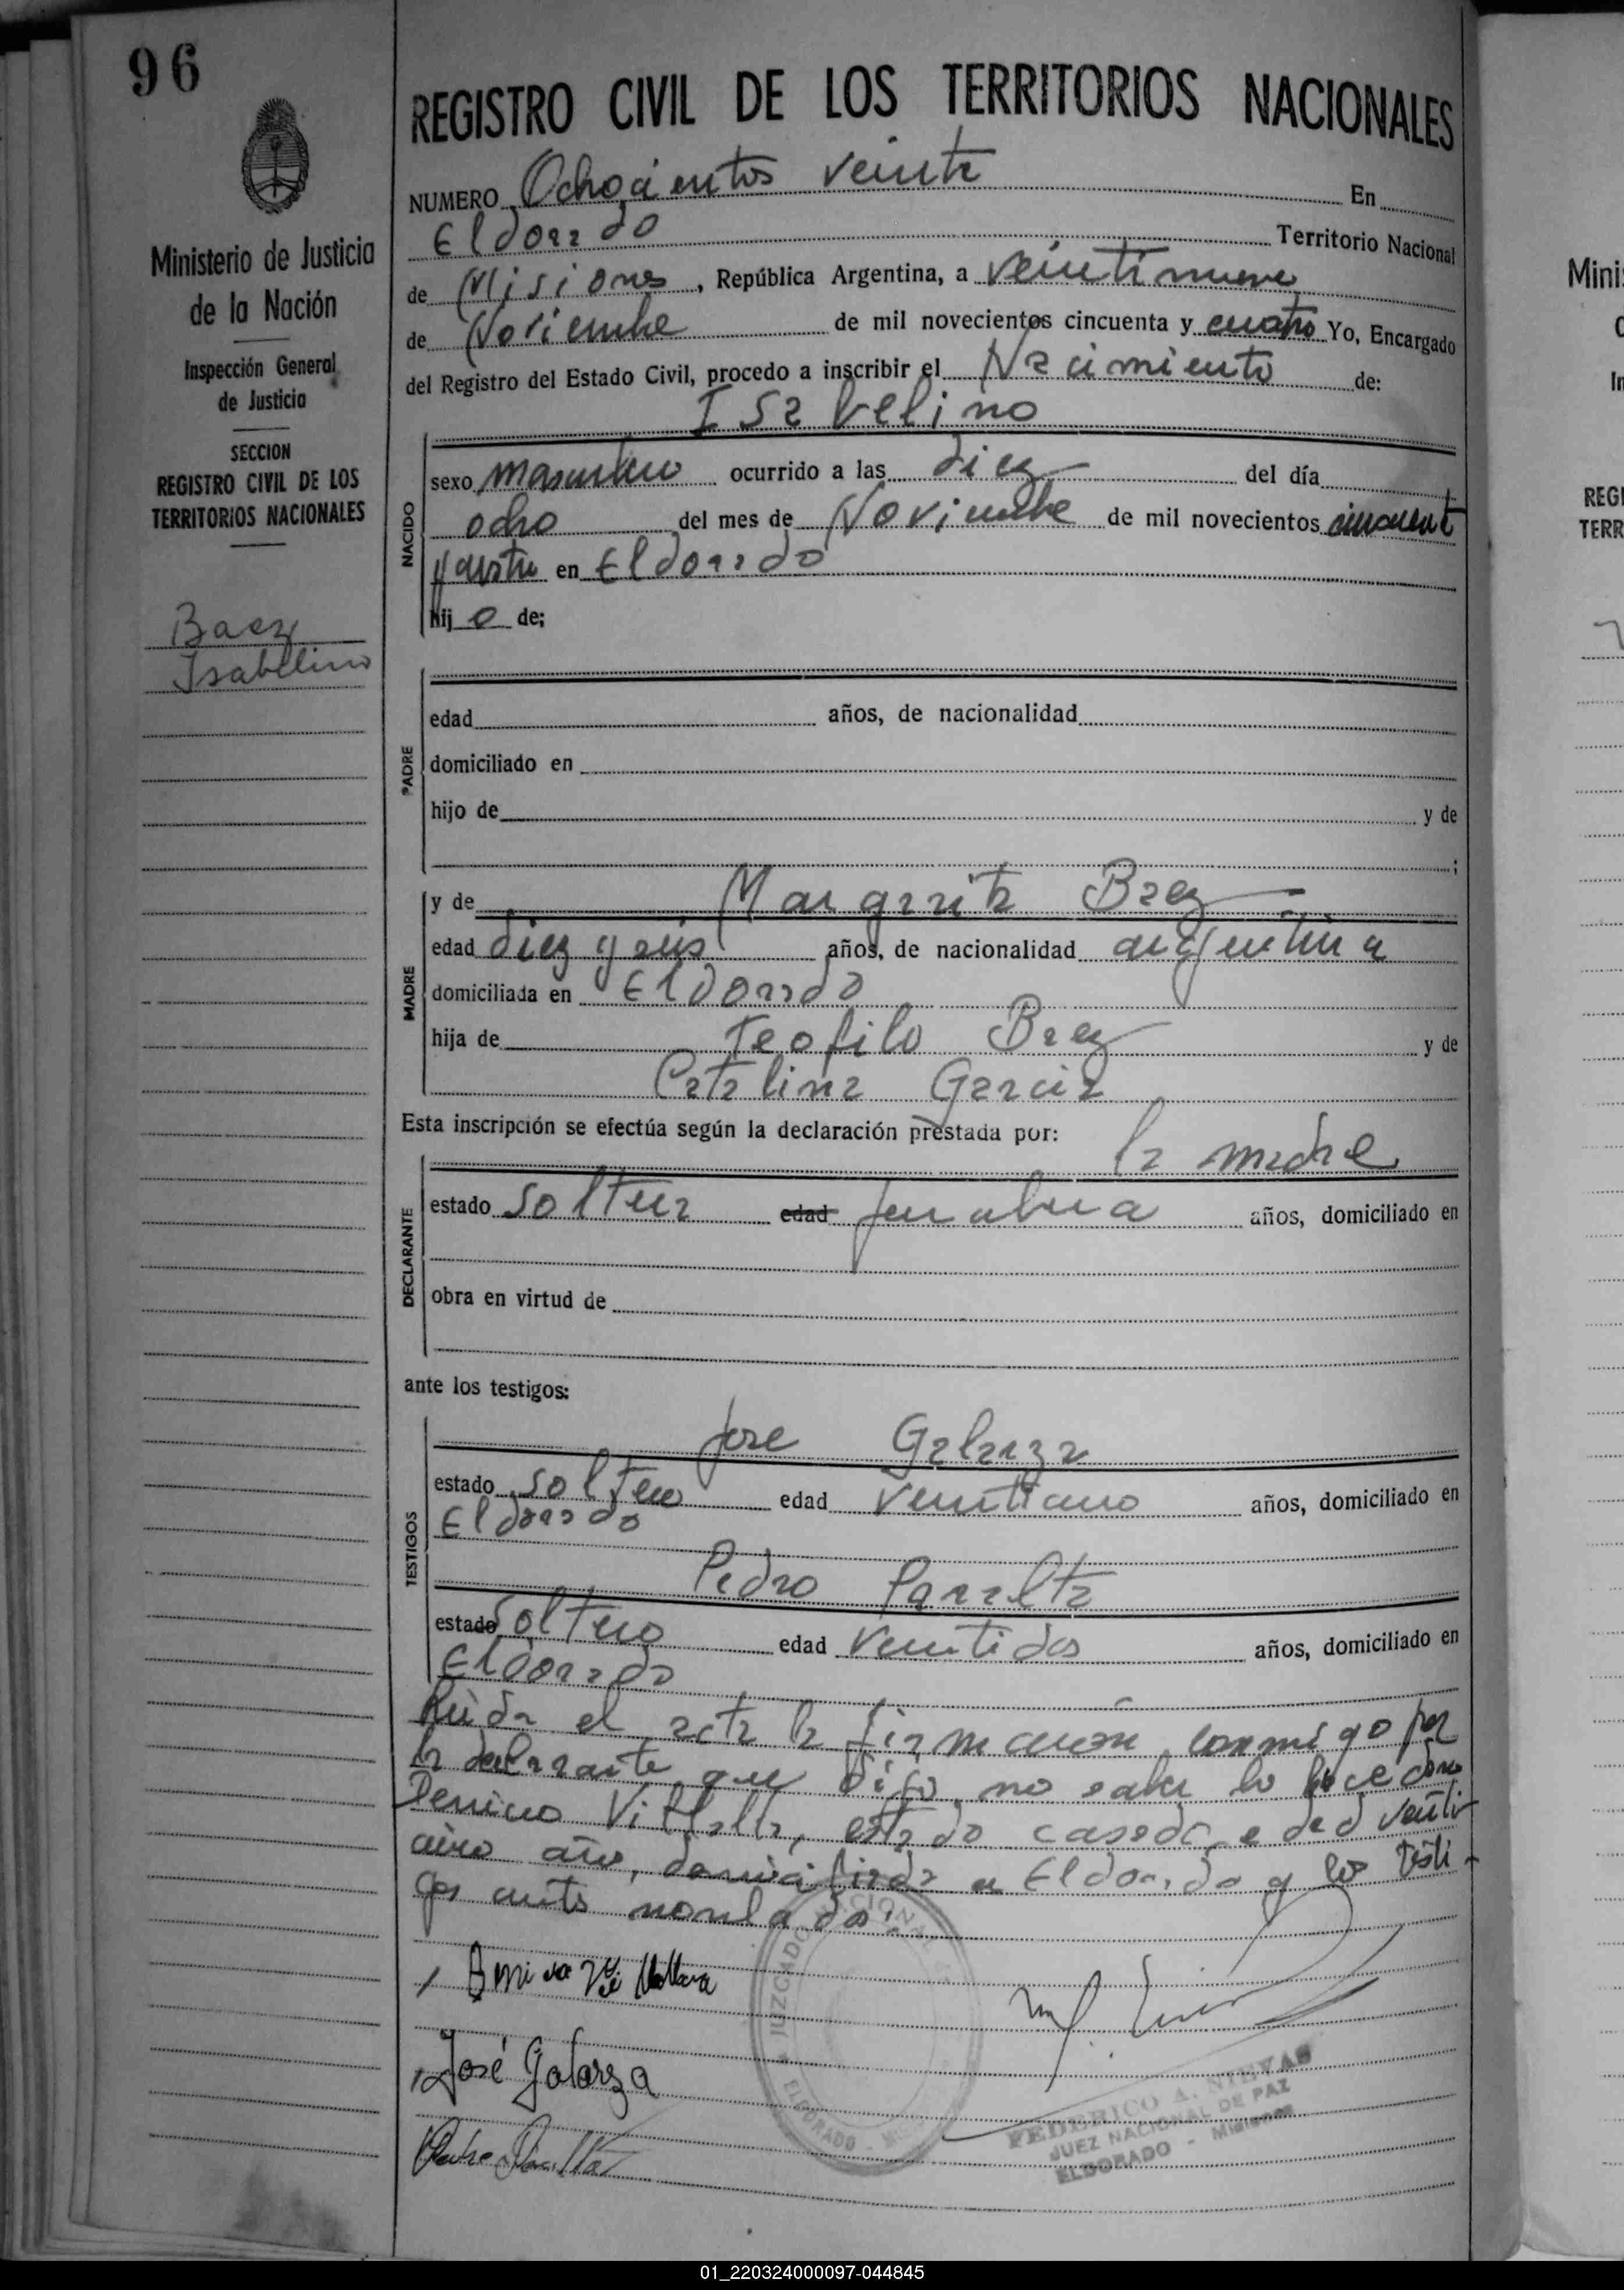 96
REGISTRO CIVIL DE LOS TERRITORIOS NACIONALES
Ministerio de Justicia
de la Nación
Inspección General
de Justicia
SECCION
REGISTRO CIVIL DE LOS
TERRITORIOS NACIONALES
Baez
Isabelino
NUMERO Ochocientos veinte En
Eldorado Territorio Nacional
de Misiones, República Argentina, a veintinueve
de Noviembre de mil novecientos cincuenta y cuatro Yo, Encargado
del Registro del Estado Civil, procedo a inscribir el Nacimiento de:
Isabelino
NACIDO
sexo masculino ocurrido a las diez del día
ocho del mes de Noviembre de mil novecientos cincuent
y cuatro en Eldorado
hij o de;
PADRE
edad años, de nacionalidad
domiciliado en
hijo de y de
;
MADRE
y de Margarita Baez
edad diez y seis años, de nacionalidad argentina
domiciliada en Eldorado
hija de Teofilo Baez y de
Catalina Garcia
Esta inscripción se efectúa según la declaración prestada por:
la madre
DECLARANTE
estado soltera edad años, domiciliado en
obra en virtud de
ante los testigos:
TESTIGOS
Jose Galarza
estado soltero edad años, domiciliado en
Eldorado
Pedro Parralta
estado soltero edad veintidos años, domiciliado en
Eldorado
Leida el acta la firmaron conmigo por
la declarante que dijo no saber lo hace doña
Villalba, estado casada, edad veinti
cinco año, domiciliada en Eldorado y los testi-
gos antes nombrados.
José Galarza
JUZGADO NACIONAL
ELDORADO
FEDERICO A. NIEVAS
JUEZ NACIONAL DE PAZ
ELDORADO - Misiones
Mini
REGI
TERR
01_220324000097-044845